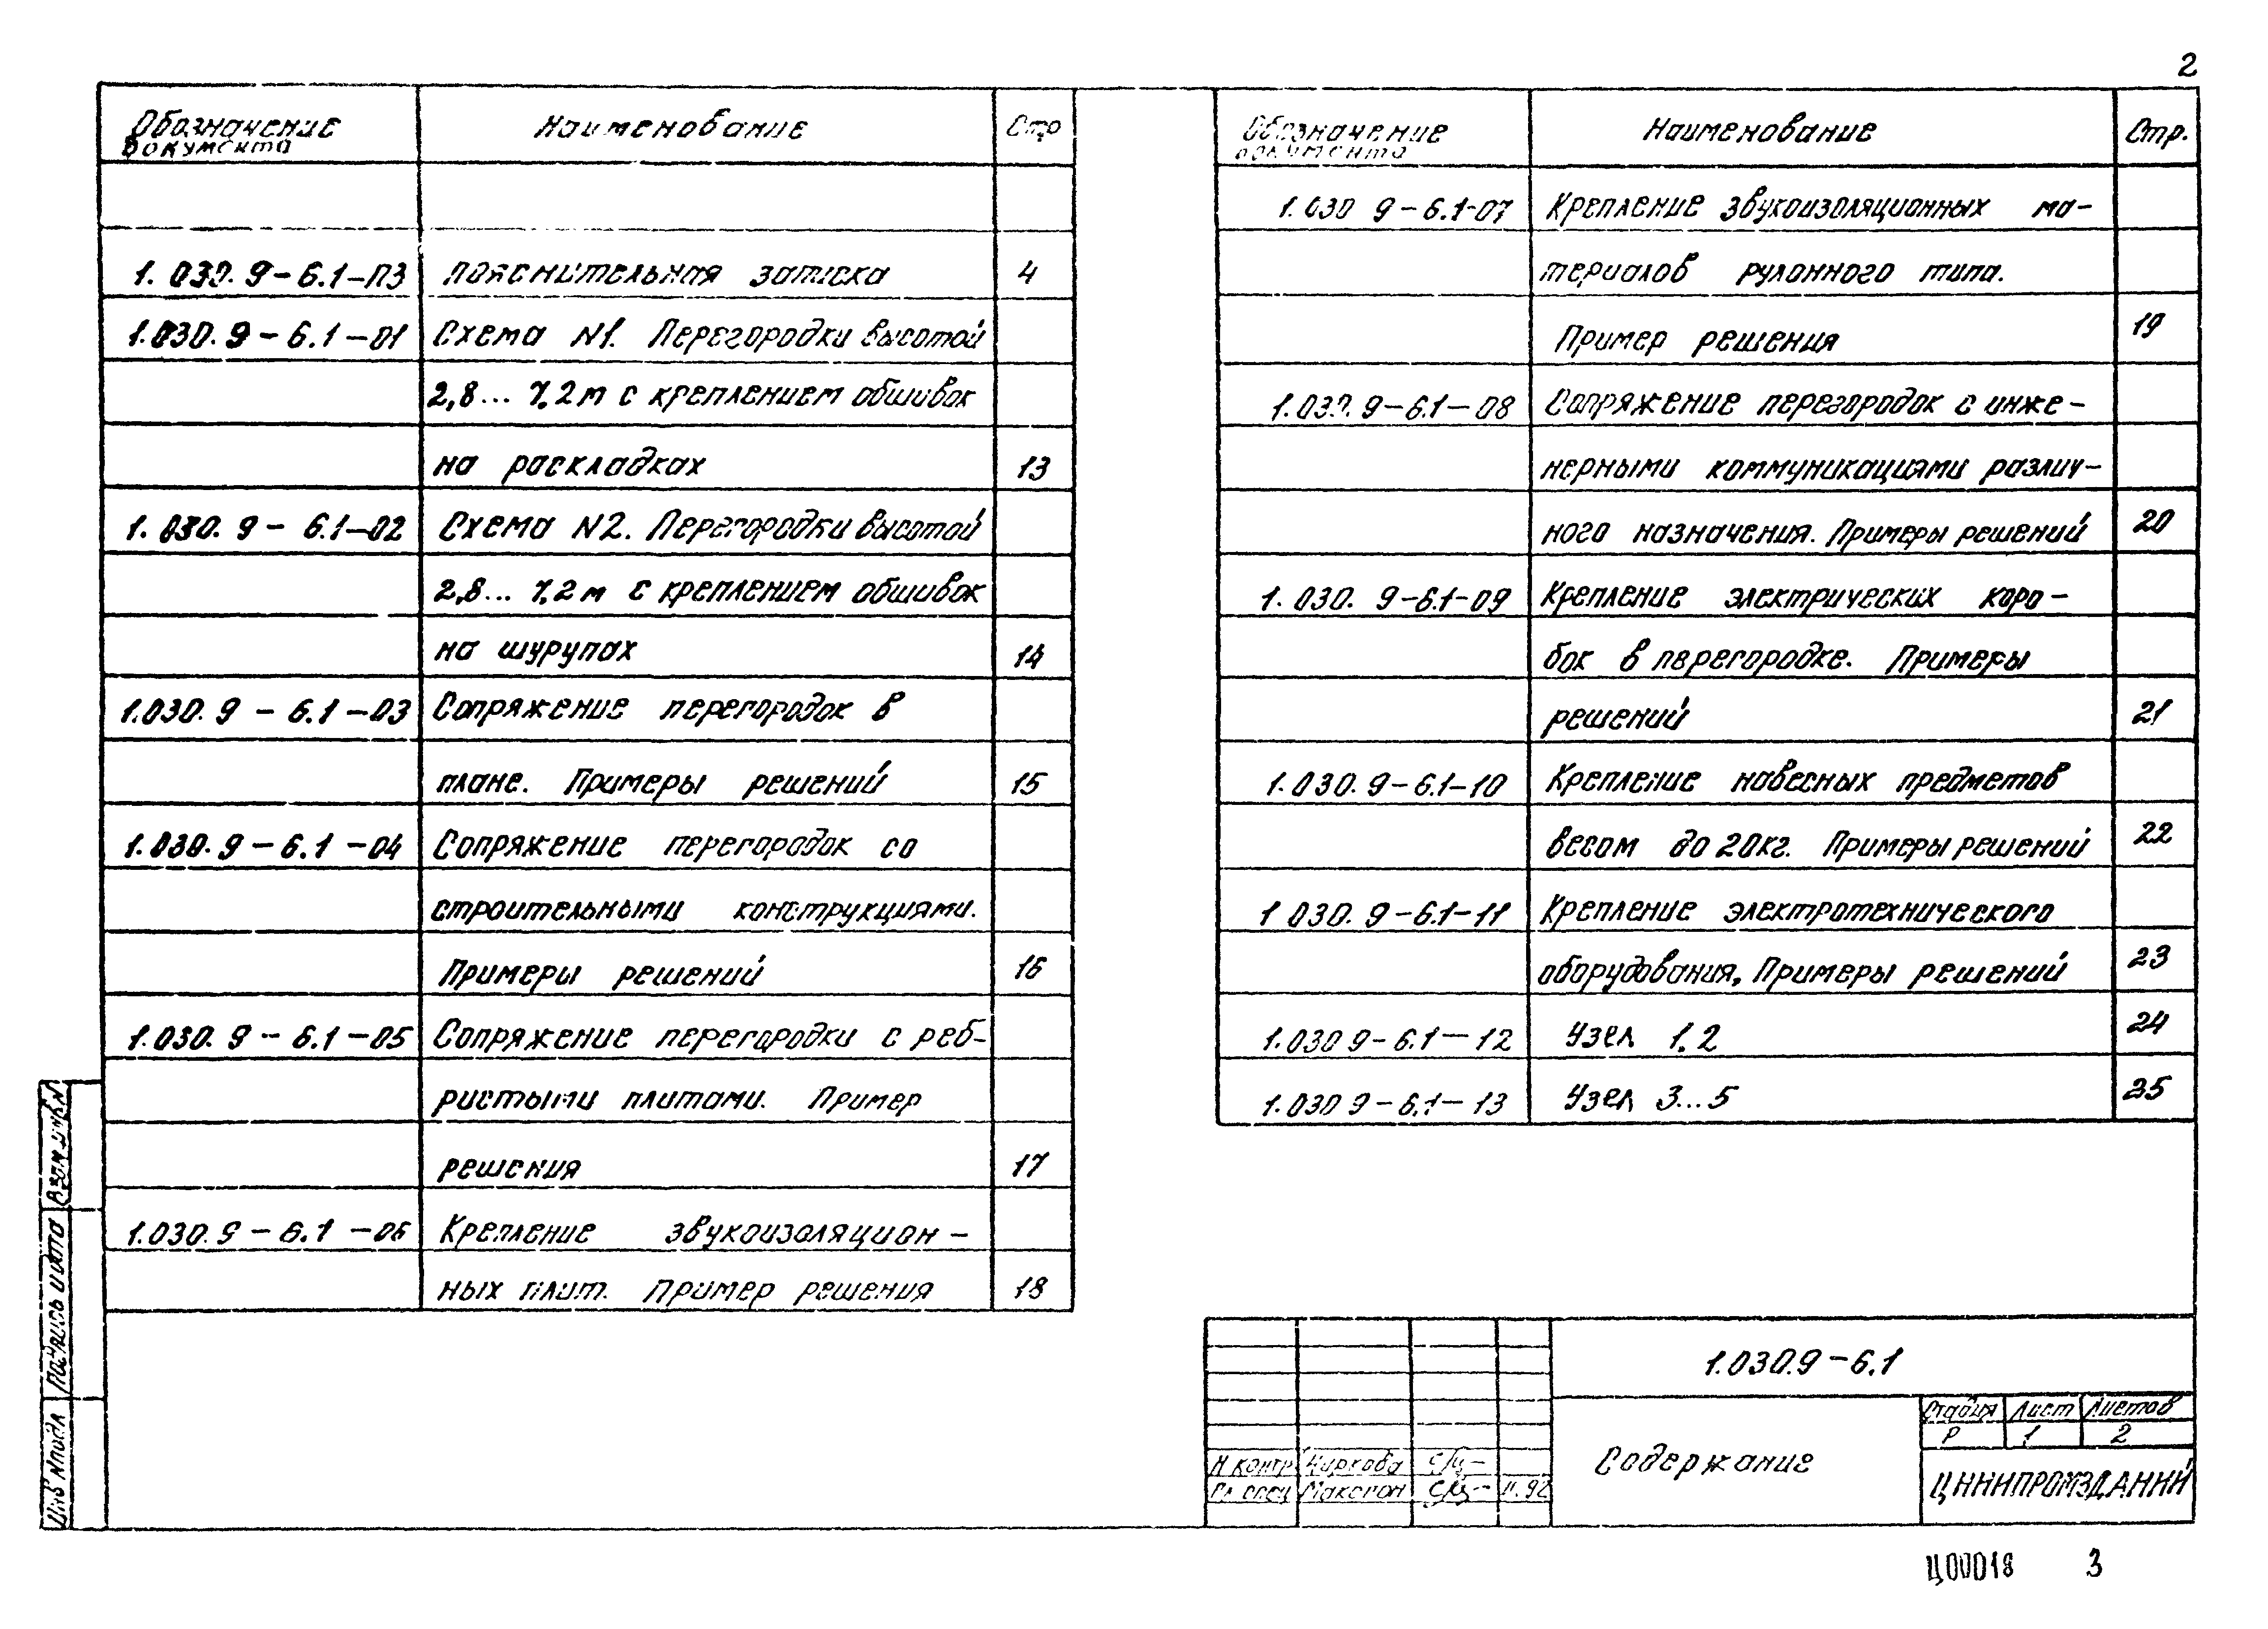 2
Обозначение документа Наименование Стр
1.030.9-6.1-ПЗ Пояснительная записка 4
1.030.9-6.1-01 Схема N1. Перегородки высотой
2,8... 7.2м с креплением обшивок
на раскладках 13
1.030.9-6.1-02 Схема N2. Перегородки высотой
2,8... 7.2м с креплением обшивок
на шурупах 14
1.030.9-6.1-03 Сопряжение перегородок в
плане. Примеры решений 15
1.030.9-6.1-04 Сопряжение перегородок со
строительными конструкциями.
Примеры решений 16
1.030.9-6.1-05 Сопряжение перегородки с реб-
ристыми плитами. Пример
решения 17
1.030.9-6.1-06 Крепление звукоизоляцион-
ных плит. Пример решения 18
Обозначение документа Наименование Стр.
1.030 9-6.1-07 Крепление звукоизоляционных ма-
териалов рулонного типа.
Пример решения 19
1.030.9-6.1-08 Сопряжение перегородок с инже-
нерными коммуникациями различ-
ного назначения. Примеры решений 20
1.030.9-6.1-09 Крепление электрических коро-
бок в перегородке. Примеры
решений 21
1.030.9-6.1-10 Крепление навесных предметов
весом до 20кг. Примеры решений 22
1 030.9-6.1-11 Крепление электротехнического
оборудования, Примеры решений 23
1.030 9-6.1-12 Узел 1.2 24
1.030 9-6.1-13 Узел 3...5 25
Взам инв N
Подпись и дата
Инв N подл
1.030.9-6.1
Содержание
Стадия Лист Листов
Р 1 2
Н контр Циркова
Гл спец Макогон 11.92
ЦНИИПРОМЗДАНИЙ
Ц00018 3